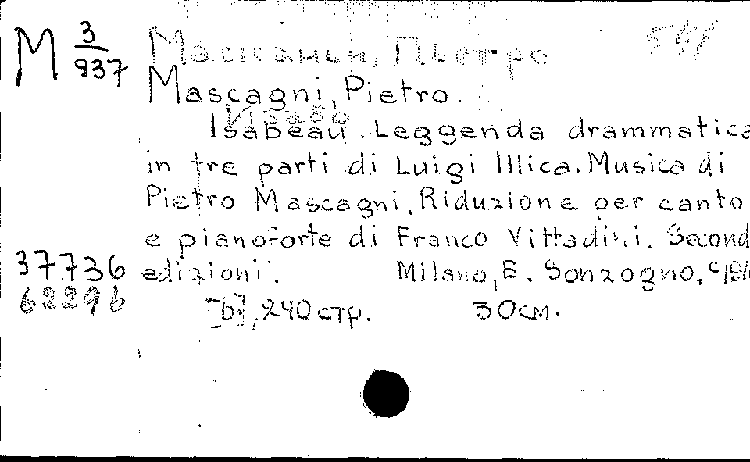 М 3/937 Масканьи, Пьетро
Mascagni, Pietro.
Isabeau. Leggenda drammatica
in tre parti di Luigi Illica. Musica di
Pietro Mascagni. Riduzione per canto
e pianoforte di Franco Vittadini. Second
37736 edizioni. Milano, E. Sonzogno,
62296 [6], 240 стр. 30 см.